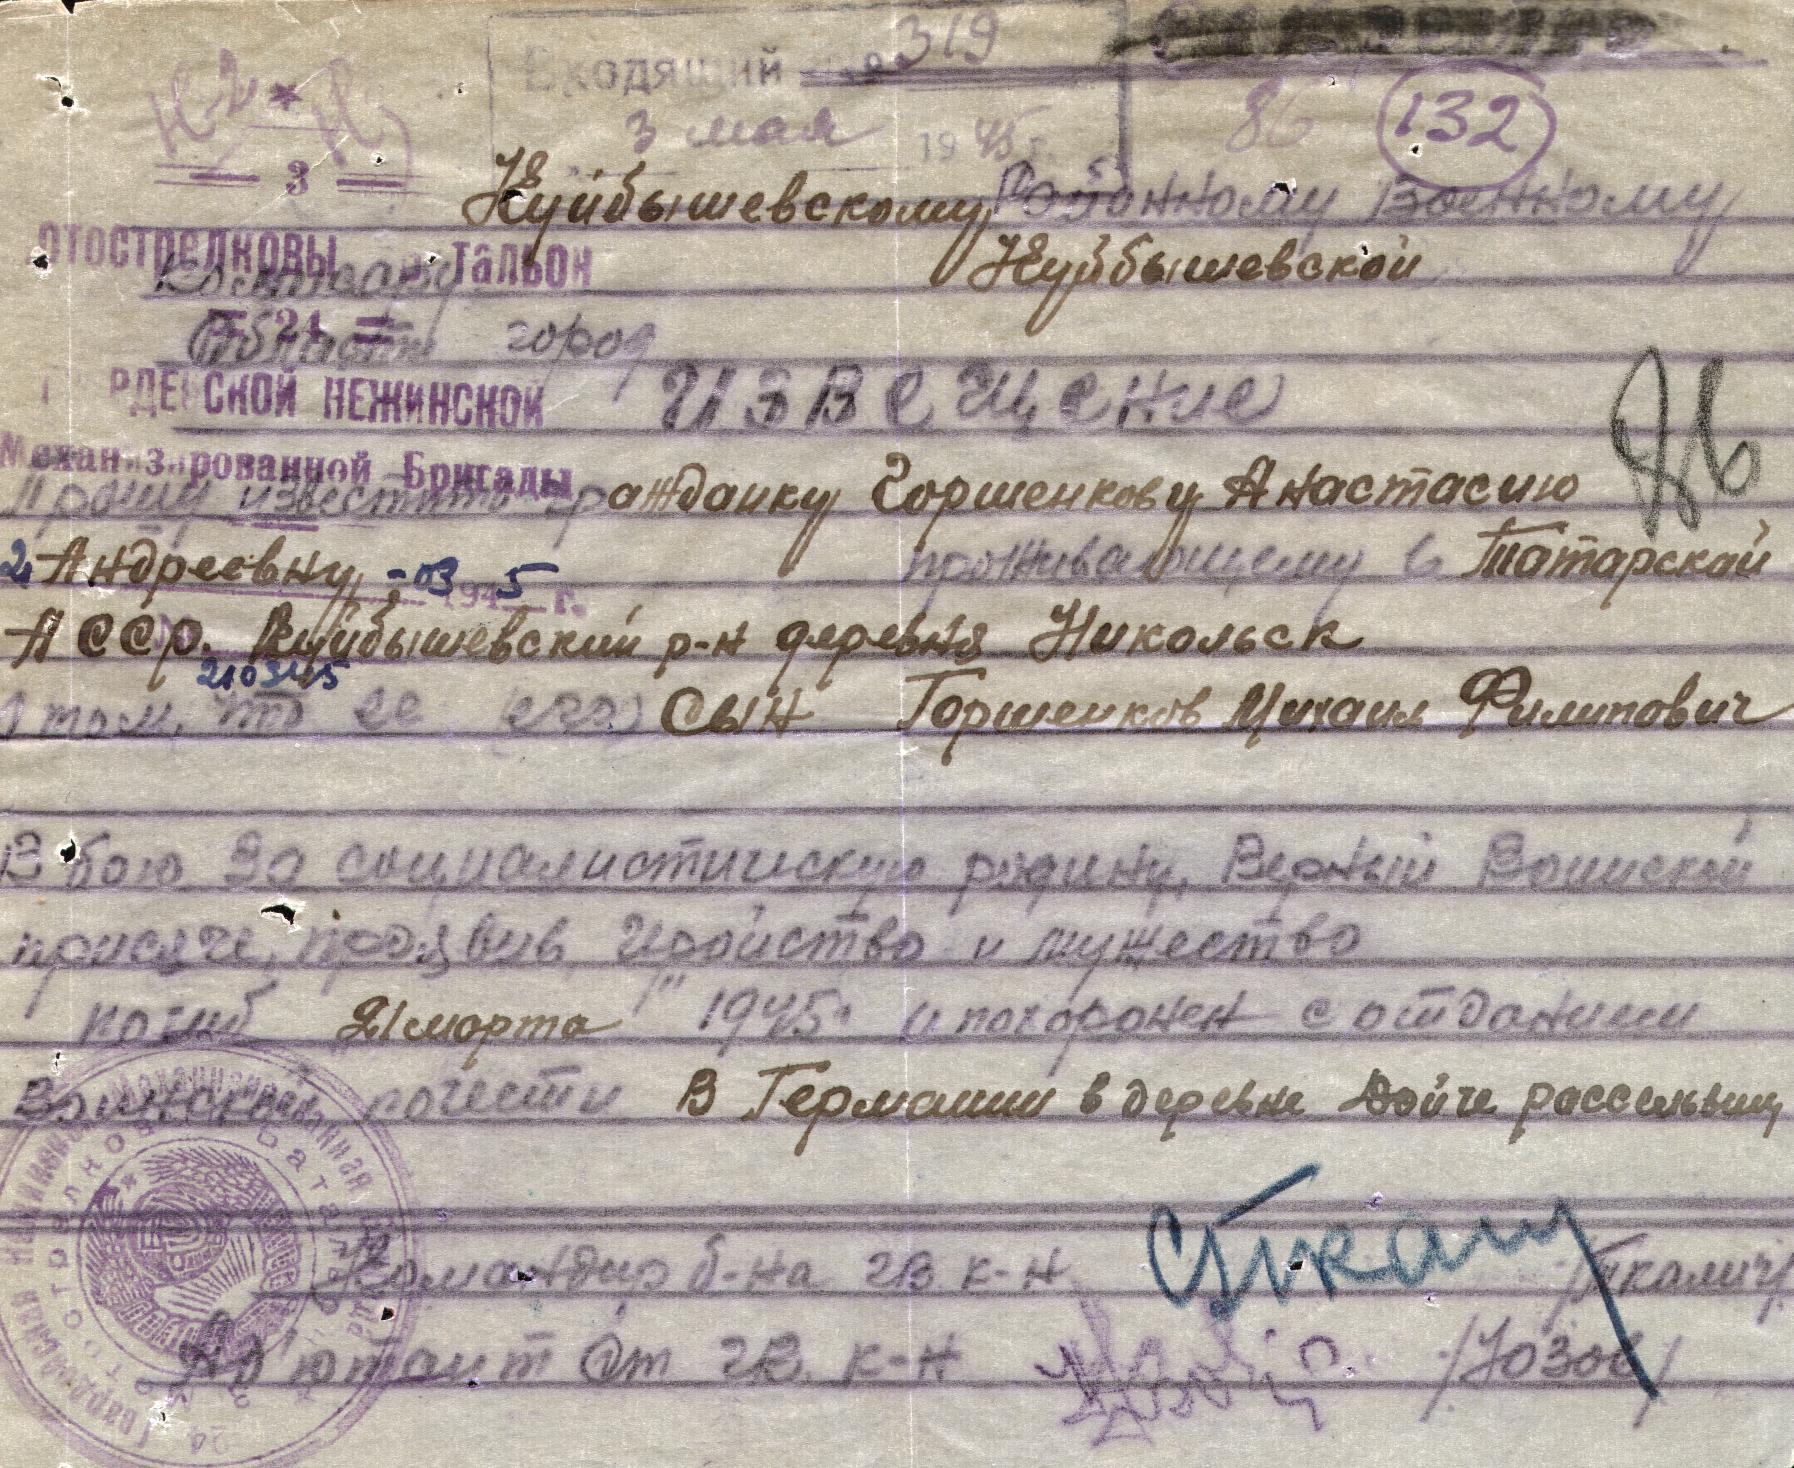 Входящий № 319
3 мая 1945 г.
86 132
3
Куйбышевскому Районному Военному
отострелковы тальон
Комиссару Куйбышевской
21
области город
РДЕЙСКОЙ НЕЖИНСКОЙ
Извещение
Механизированной Бригады
Прошу известить гражданку Горшенкову Анастасию
Андреевну, проживающему в Татарской
21 - 03 1945 г.
АССР. Куйбышевский р-н деревня Никольск
210345
о том, что ее (его) сын Горшенков Михаил Филипович
В бою за социалистическую родину, верный воинской
присяге, проявив геройство и мужество
погиб 21 марта " 1945г. и похоронен с отданием
Воинской почести в Германии в деревне Дойче рассельвиц
Командир б-на гв. к-н /Ткалич/
Ад'ютант Ст гв. к-н /Юзов/